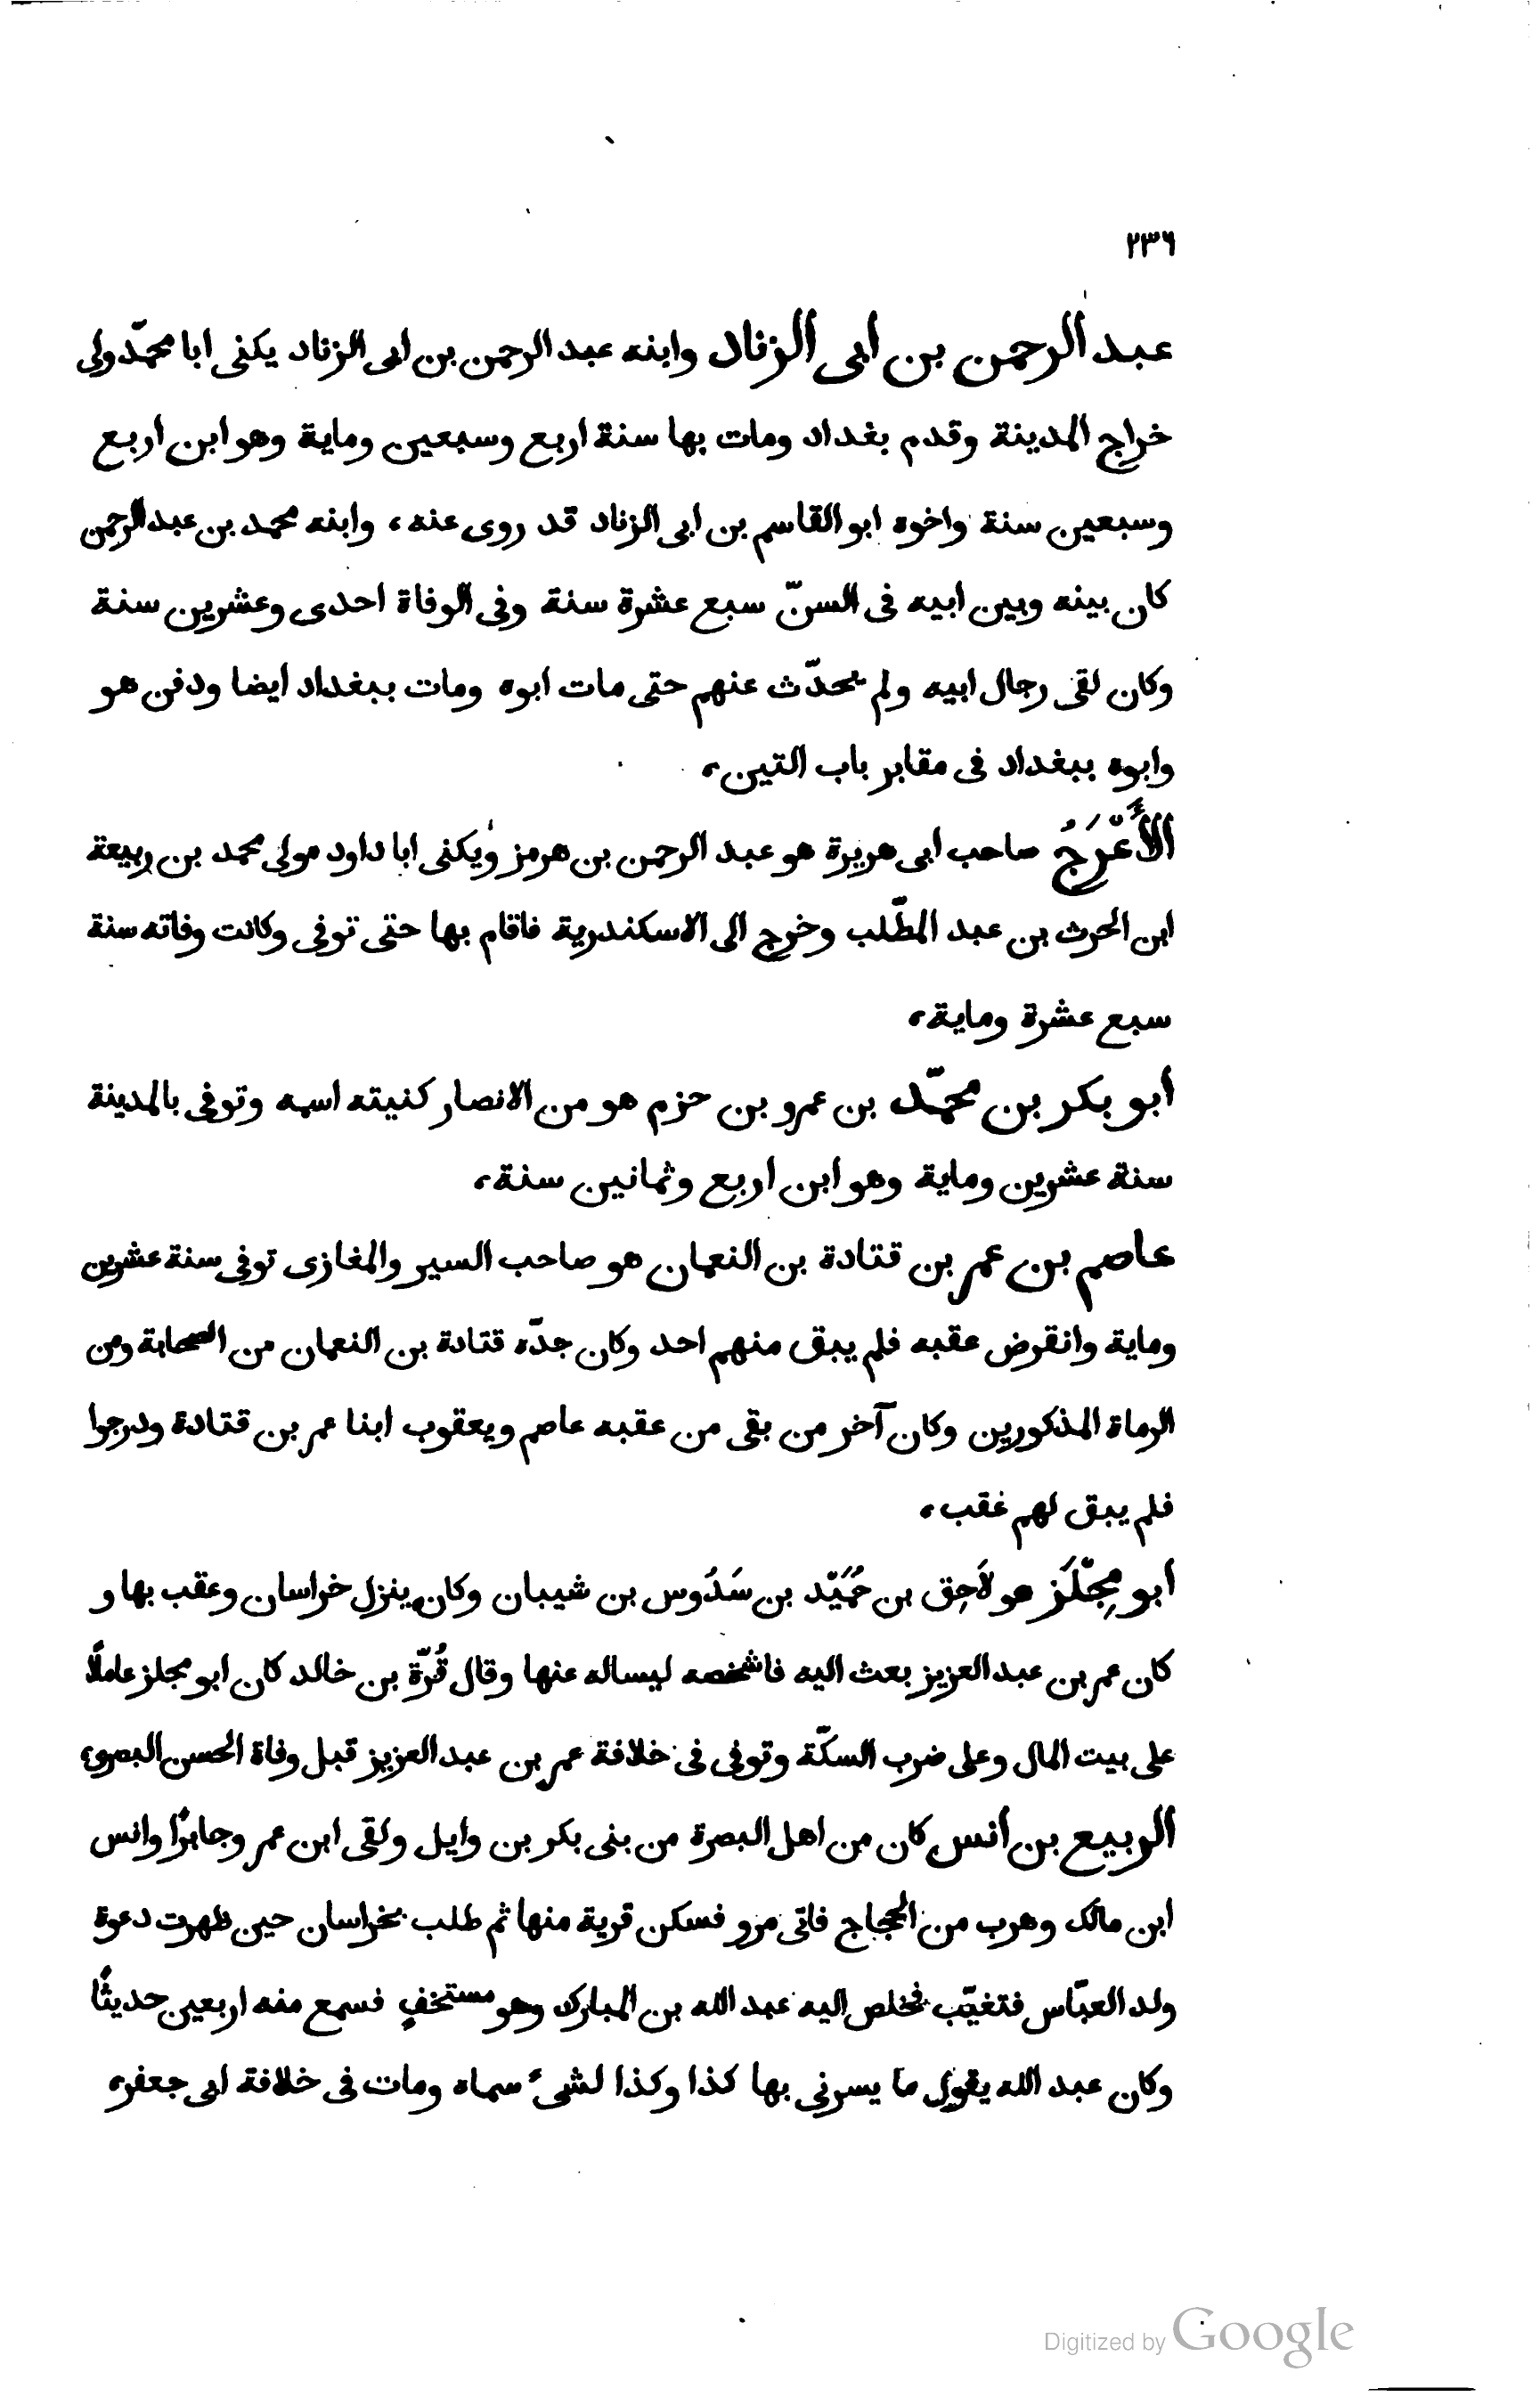 ٢٣٦
عبد الرحمن بن ابى الزناد وابنه عبد الرحمن بن ابى الزناد يكنى ابا محمّد ولى
خراج المدينة وقدم بغداد ومات بها سنة اربع وسبعين وماية وهو ابن اربع
وسبعين سنة واخوه ابو القاسم بن ابى الزناد قد روى عنه، وابنه محمد بن عبد الرحمن
كان بينه وبين ابيه فى السنّ سبع عشرة سنة وفى الوفاة احدى وعشرين سنة
وكان لقى رجال ابيه ولم يحدّث عنهم حتى مات ابوه ومات ببغداد ايضا ودفن هو
وابوه ببغداد فى مقابر باب التين،
الأَعْرَجُ صاحب ابى هريرة هو عبد الرحمن بن هرمز ويكنى ابا داود مولى محمد بن ربيعة
ابن الحرث بن عبد المطّلب وخرج الى الاسكندرية فاقام بها حتى توفى وكانت وفاته سنة
سبع عشرة وماية،
أبو بكر بن محمّد بن عمرو بن حزم هو من الانصار كنيته اسمه وتوفى بالمدينة
سنة عشرين وماية وهو ابن اربع وثمانين سنة،
عاصم بن عمر بن قتادة بن النعمان هو صاحب السير والمغازى توفى سنة عشرين
وماية وانقرض عقبه فلم يبق منهم احد وكان جدّه قتادة بن النعمان من الصحابة ومن
الرماة المذكورين وكان آخر من بقى من عقبه عاصم ويعقوب ابنا عمر بن قتادة ودرجوا
فلم يبق لهم غقب،
أبو مِجْلَز هو لاَحِق بن حُمَيْد بن سَدُوس بن شيبان وكان ينزل خراسان وعقب بها و
كان عمر بن عبد العزيز بعث اليه فاشخصه ليساله عنها وقال قُرّة بن خالد كان ابو مجلز عاملًا
على بيت المال وعلى ضرب السكّة وتوفى فى خلافة عمر بن عبد العزيز قبل وفاة الحسن البصرى،
الربيع بن أنس كان من اهل البصرة من بنى بكر بن وايل ولقى ابن عمر وجابرًا وانس
ابن مالك وهرب من الحجاج فاتى مرو فسكن قرية منها ثم طلب بخراسان حين ظهرت دعوة
ولد العبّاس فتغيّب فخلص اليه عبد الله بن المبارك وهو مستخفٍ فسمع منه اربعين حديثًا
وكان عبد الله يقول ما يسرنى بها كذا وكذا لشىء سماه ومات فى خلافة ابى جعفر،
Digitized by Google